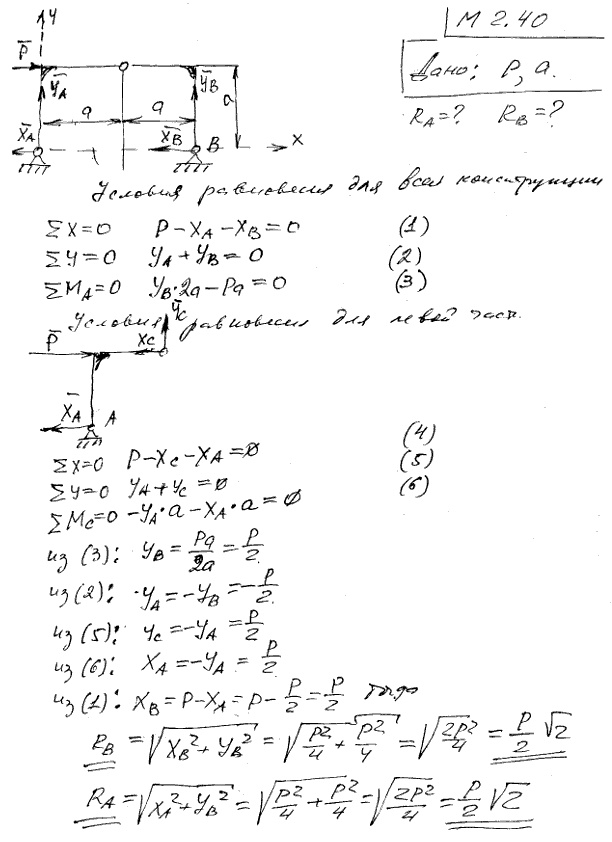 y
М 2.40
P̄
ȳA
ȳB
Дано: P, a.
a
a
a
RA=? RB=?
X̄A
X̄B
B
x
Условия равновесия для всей конструкции
ΣX=0 P-XA-XB=0 (1)
ΣY=0 YA+YB=0 (2)
ΣMA=0 YB·2a-Pa=0 (3)
Условия равновесия для левой част.
ȳC
P̄
XC
X̄A
A
(4)
ΣX=0 P-XC-XA=0 (5)
ΣY=0 YA+YC=0 (6)
ΣMC=0 -YA·a-XA·a=0
из (3): YB=Pa/2a=P/2
из (2): YA=-YB=-P/2
из (5): YC=-YA=P/2
из (6): XA=-YA=P/2
из (1): XB=P-XA=P-P/2=P/2 тогда
RB=√(XB²+YB²)=√(P²/4+P²/4)=√(2P²/4)=P/2 √2
RA=√(XA²+YB²)=√(P²/4+P²/4)=√(2P²/4)=P/2 √2